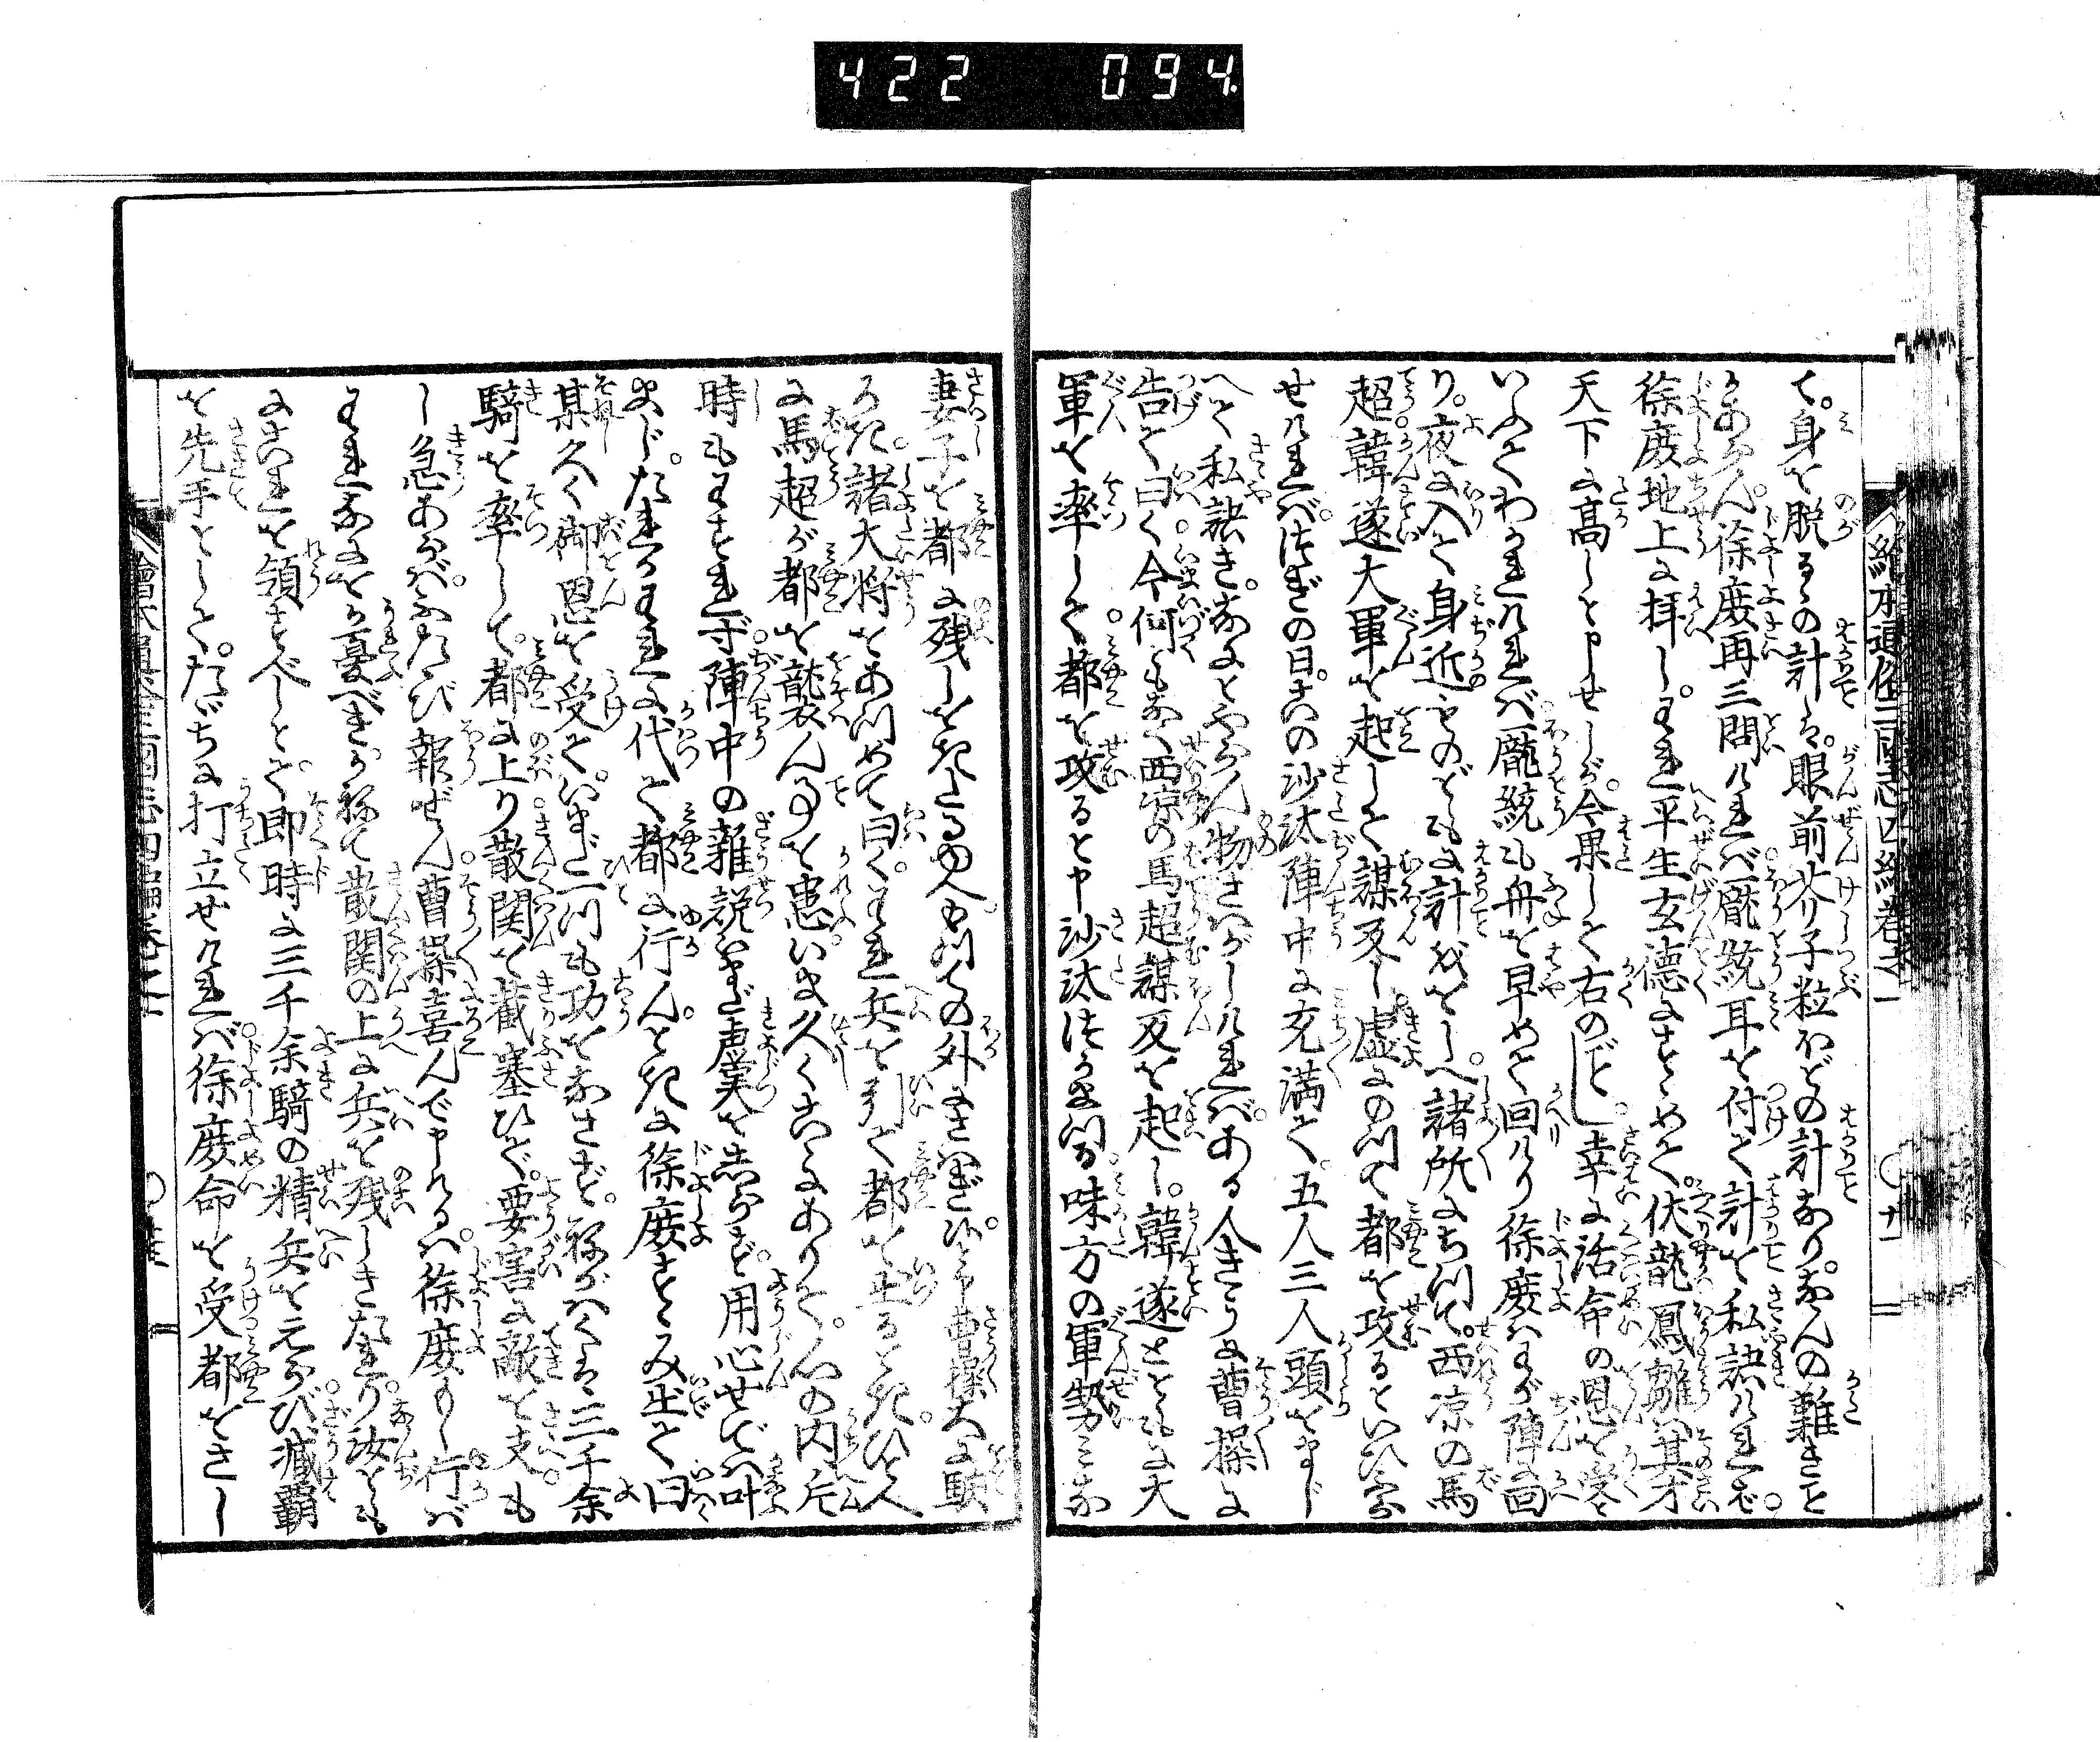 422 094
繪本通俗三國志四編卷之一
て。身を脱るゝの計は。眼前芥子粒ほどの計あり。なんの難きこと
かあらん。徐庶再三問ければ。龐統耳を付て計を私語ければ。
徐庶地上に拝し。われ平生玄德にすゝめて。伏龍鳳雛は其才
天下に高しと申せしが。今果して右のごとし。幸に活命の恩を受と
いふてわかれければ。龐統も舟を早めて回けり徐庶はわが陣に回
り。夜に入て身近ものどもに計をほどこし。諸所にちつて。西凉の馬
超韓遂大軍を起して謀叛し。虚にのつて都を攻るといひふら
せければ。つぎの日。この沙汰陣中に充満て。五人三人頭をまじ
へて私語き。なにとやらん物さはがしければ。ある人きうに曹操に
告て曰く。今何ともなく西凉の馬超謀叛を起し。韓遂とともに大
軍を率して都を攻ると申沙汰つかまつる。味方の軍勢みな
妻子を都に残しをきたるゆへ。もつての外にさはぎ候。曹操大に駭
ろき。諸大将をあつめて曰く。われ兵を引て都を出るとき。ひとへ
に馬超が都を襲ん事を患。いま久くこゝにありて。心の内片
時もわすれず。陣中の雑説まだ声実をしらず。用心せでは叶
まじ。たれかわれに代て都に行んときに徐庶すゝみ出て曰
某久く御恩を受て。いまだ一つも功をなさず。ねがはくは三千余
騎を率して。都に上り散関を截塞ひで。要害に敵を支。も
し急あらば。ふたゝび報ぜん。曹操喜んで申けるは。徐庶もし行ば
われなにをか憂べき。かねて散関の上に兵を残しをきたり。汝とも
にこれを領すべしとて。即時に三千余騎の精兵をえらび。臧覇
を先手として。たゞちに打立せければ。徐庶命を受。都をさし
繪本通俗三國志四編卷之一